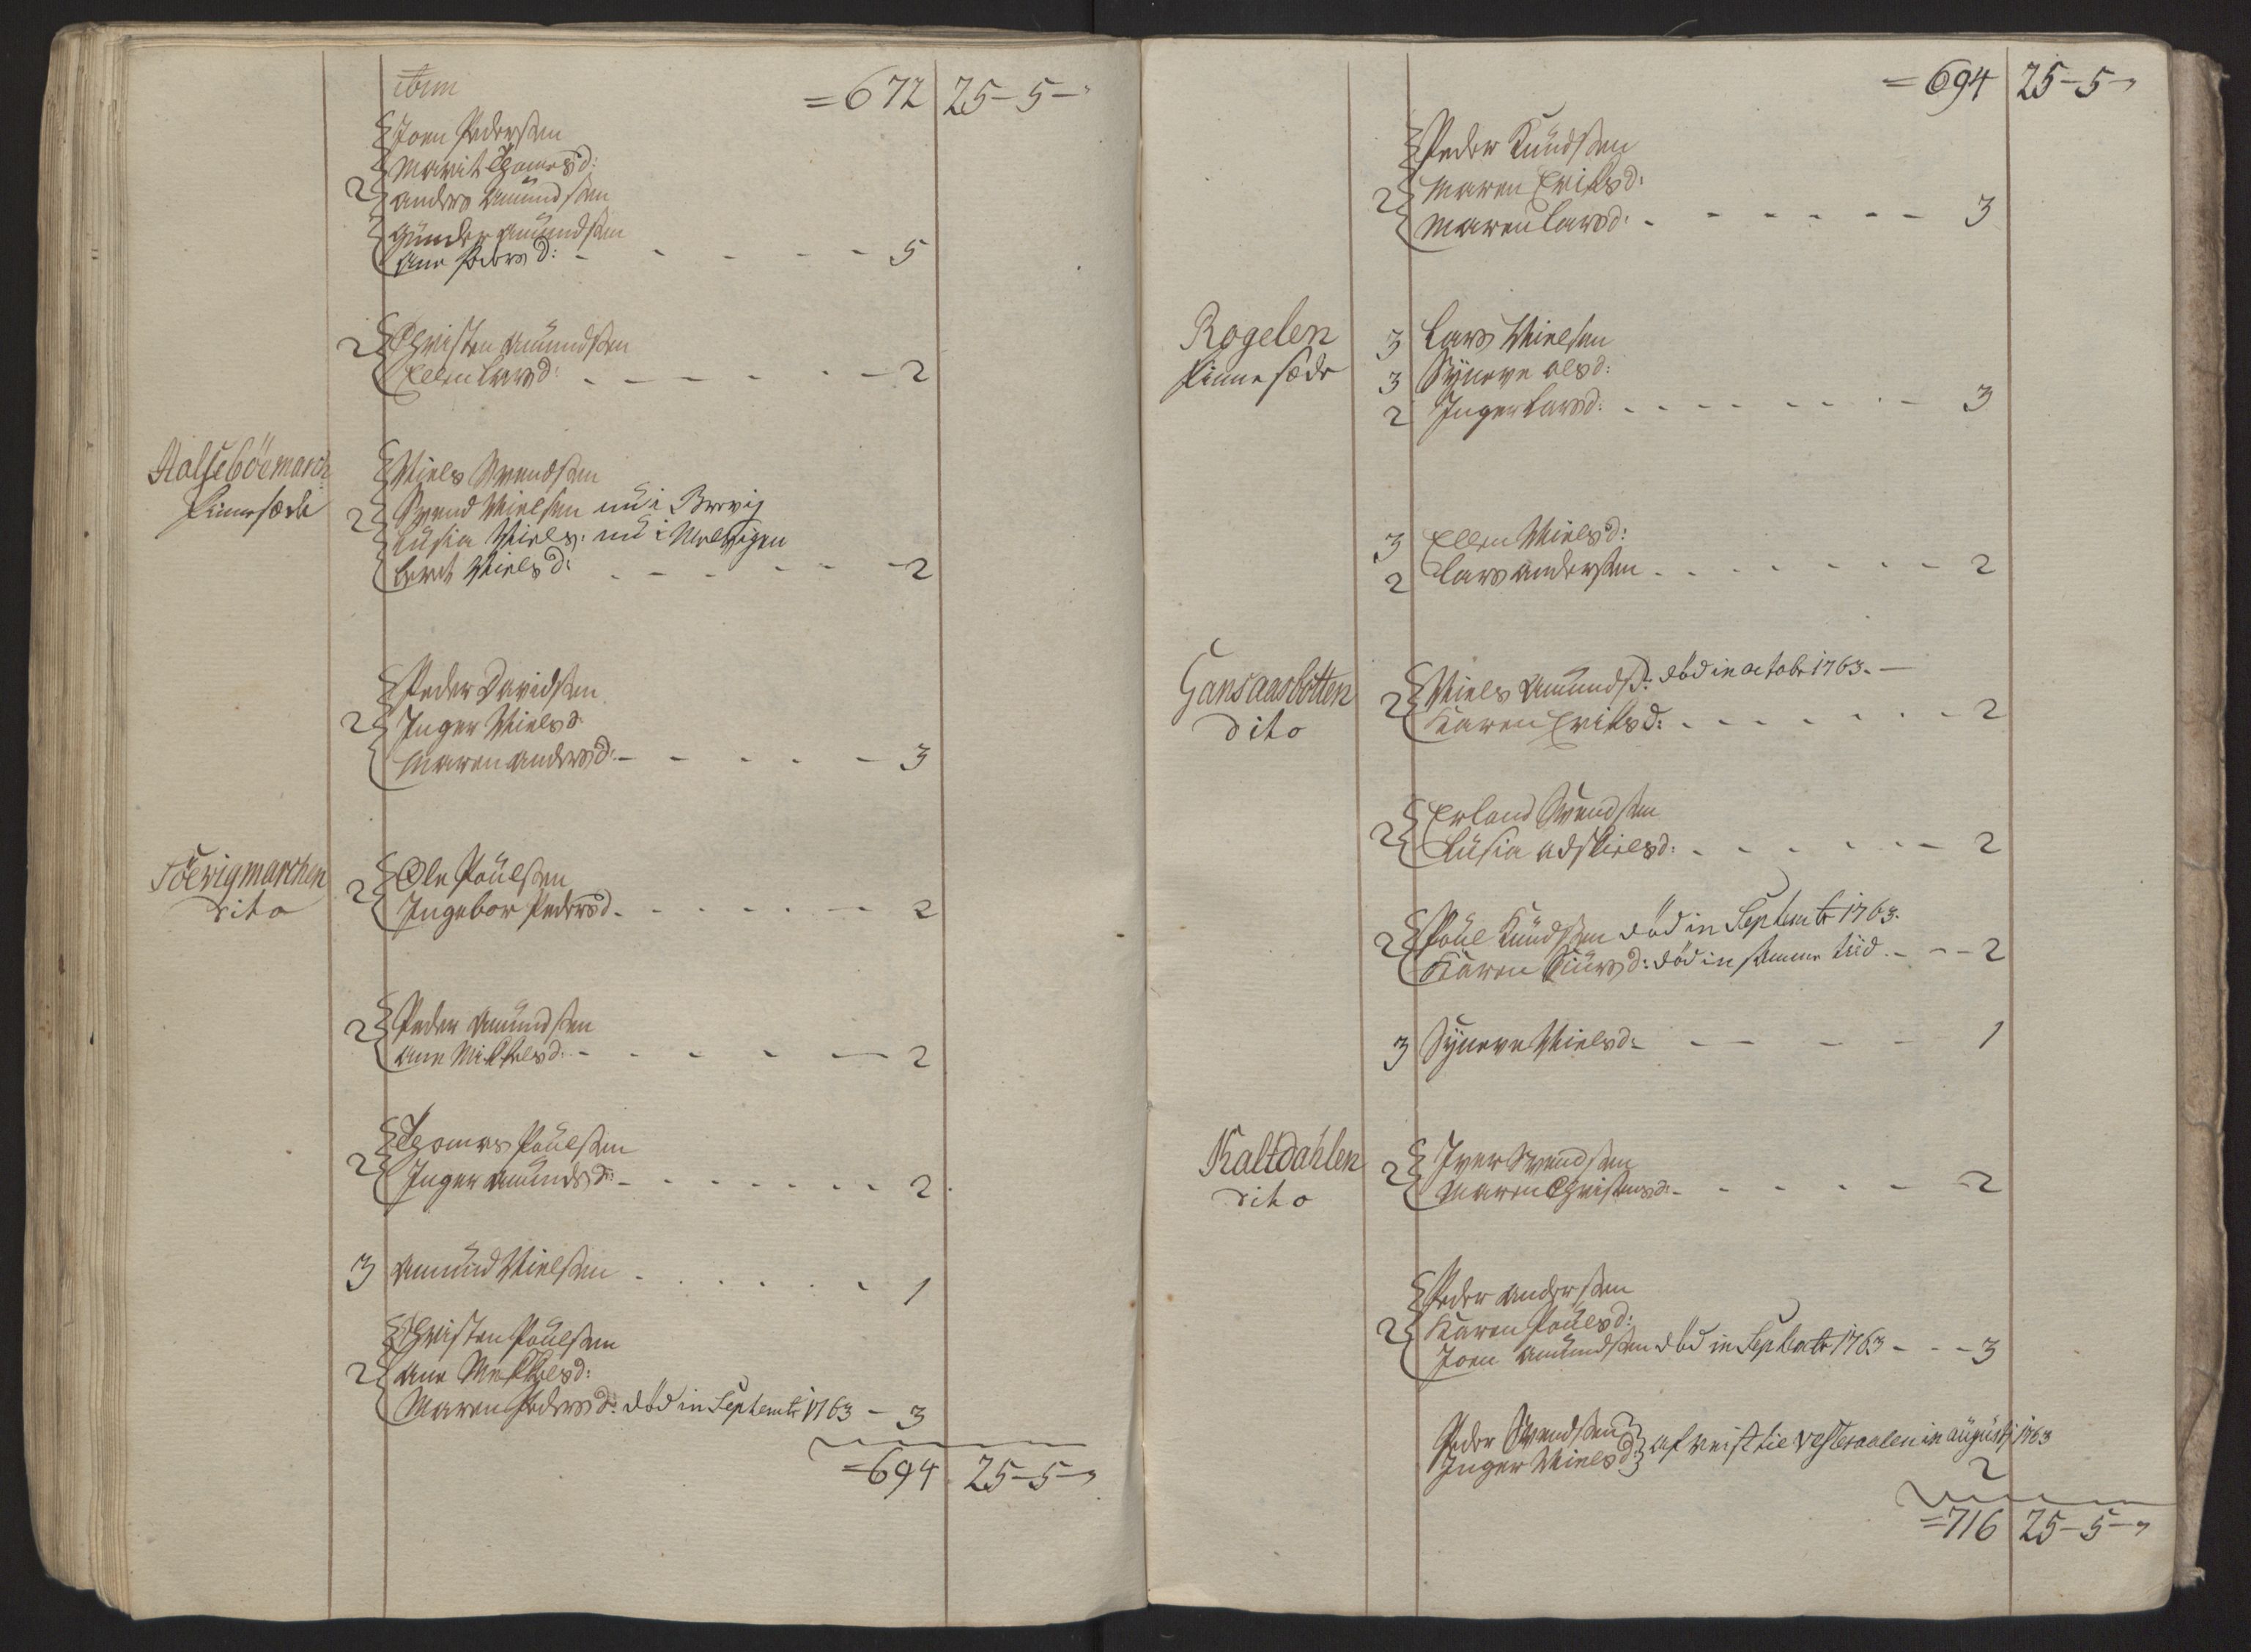 item =672 25-5-"
Joen Pedersen
Marit Thomesd:
2 anders Amundsen
Gunder Amundsen
Ane Pedersd: - - - - - 5
2 Christen Amundsen
Ellen Larsd: - - - - - - 2
Halseböemarch Niels Svendsen
finnesæde 2 Svend Nielsen nu i
Lusia Niels: nu i
berit Nielsd: - - - - - - 2
Peder Davidsen
2 Inger Nielsd
Maren andersd: - - - - - 3
Töevigmarchen 2 Ole Poulsen
dito Ingebor Pedersd - - - - - - 2
2 Peder Amundsen
Ane Mikkelsd: - - - - - 2
2 Thomas Poulsen
Inger Amundsd: - - - - - - - 2
3 Amund Nielsen - - - - - - 1
Christen Poulsen
2 Ane Mikkelsd:
Maren Pedersd: död in Septembr 1763 - 3
=694 25-5-"
=694 25-5-"
Peder Knudsen
2 Maren Eriksd:
Maren Larsd: - - - - - - - 3
Rogelen 3 Lars Nielsen
finnesæde 3 Syneve olsd:
2 Inger Larsd: - - - - - - - - 3
3 Ellen Nielsd:
2 Lars andersen - - - - - - - 2
Gansaasbotten 2 Niels Amunds: död in octobr 1763. -
dito Karen Eriksd: - - - - - - - 2
2 Erland Svendsen
Lusia adskielsd: - - - - - - 2
2 Poul Knudsen död in Septembr 1763.
Karen Siursd: död in samme tiid - - - 2
3 Syneve Nielsd: - - - - - 1
Kaltdahlen 2 Iver Svendsen
dito Maren Christensd: - - - - - - 2
Peder andersen
2 Karen Poulsd:
Joen Amundsen död in Septembr 1763 - - - 3
Peder Svendsen
Inger Nielsd: af reist til Vesteraalen in augusti 1763
2
=716 25-5-"